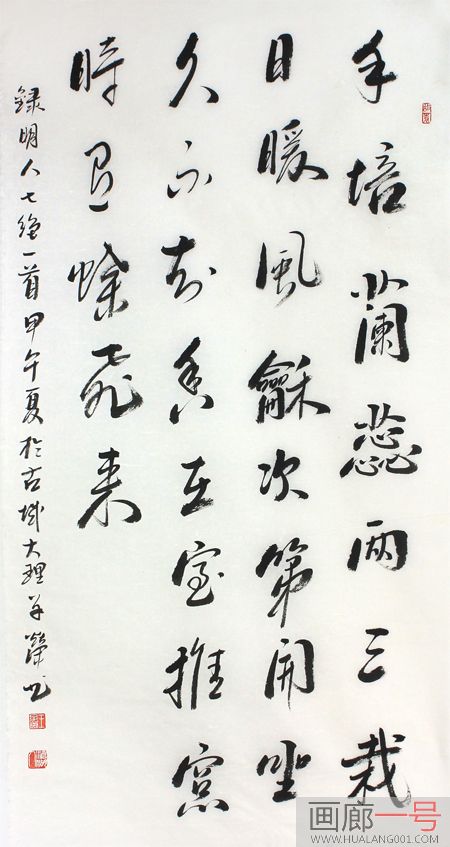 手培蘭蕊两三栽
日暖風龢次第開坐
久不知香在室推窓
時有蝶飛来
録明人七絶一首甲午夏於古城大理榮书
画廊一号
WWW.HUALANG001.COM